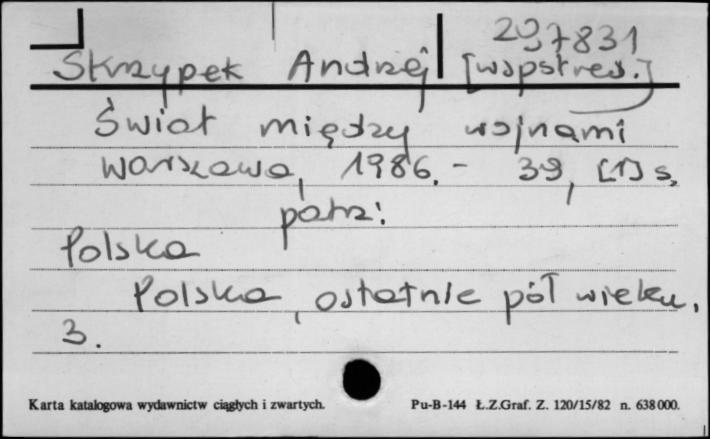 237831
Skrzypek Andrzej [współres.]
Świat między wojnami
Warszawa, 1986. - 39, [1] s.
patrz:
Polska
Polska, ostatnie pół wieku,
3.
Karta katalogowa wydawnictw ciągłych i zwartych. Pu-B-144 Ł.Z.Graf. Z. 120/15/82 n. 638000.